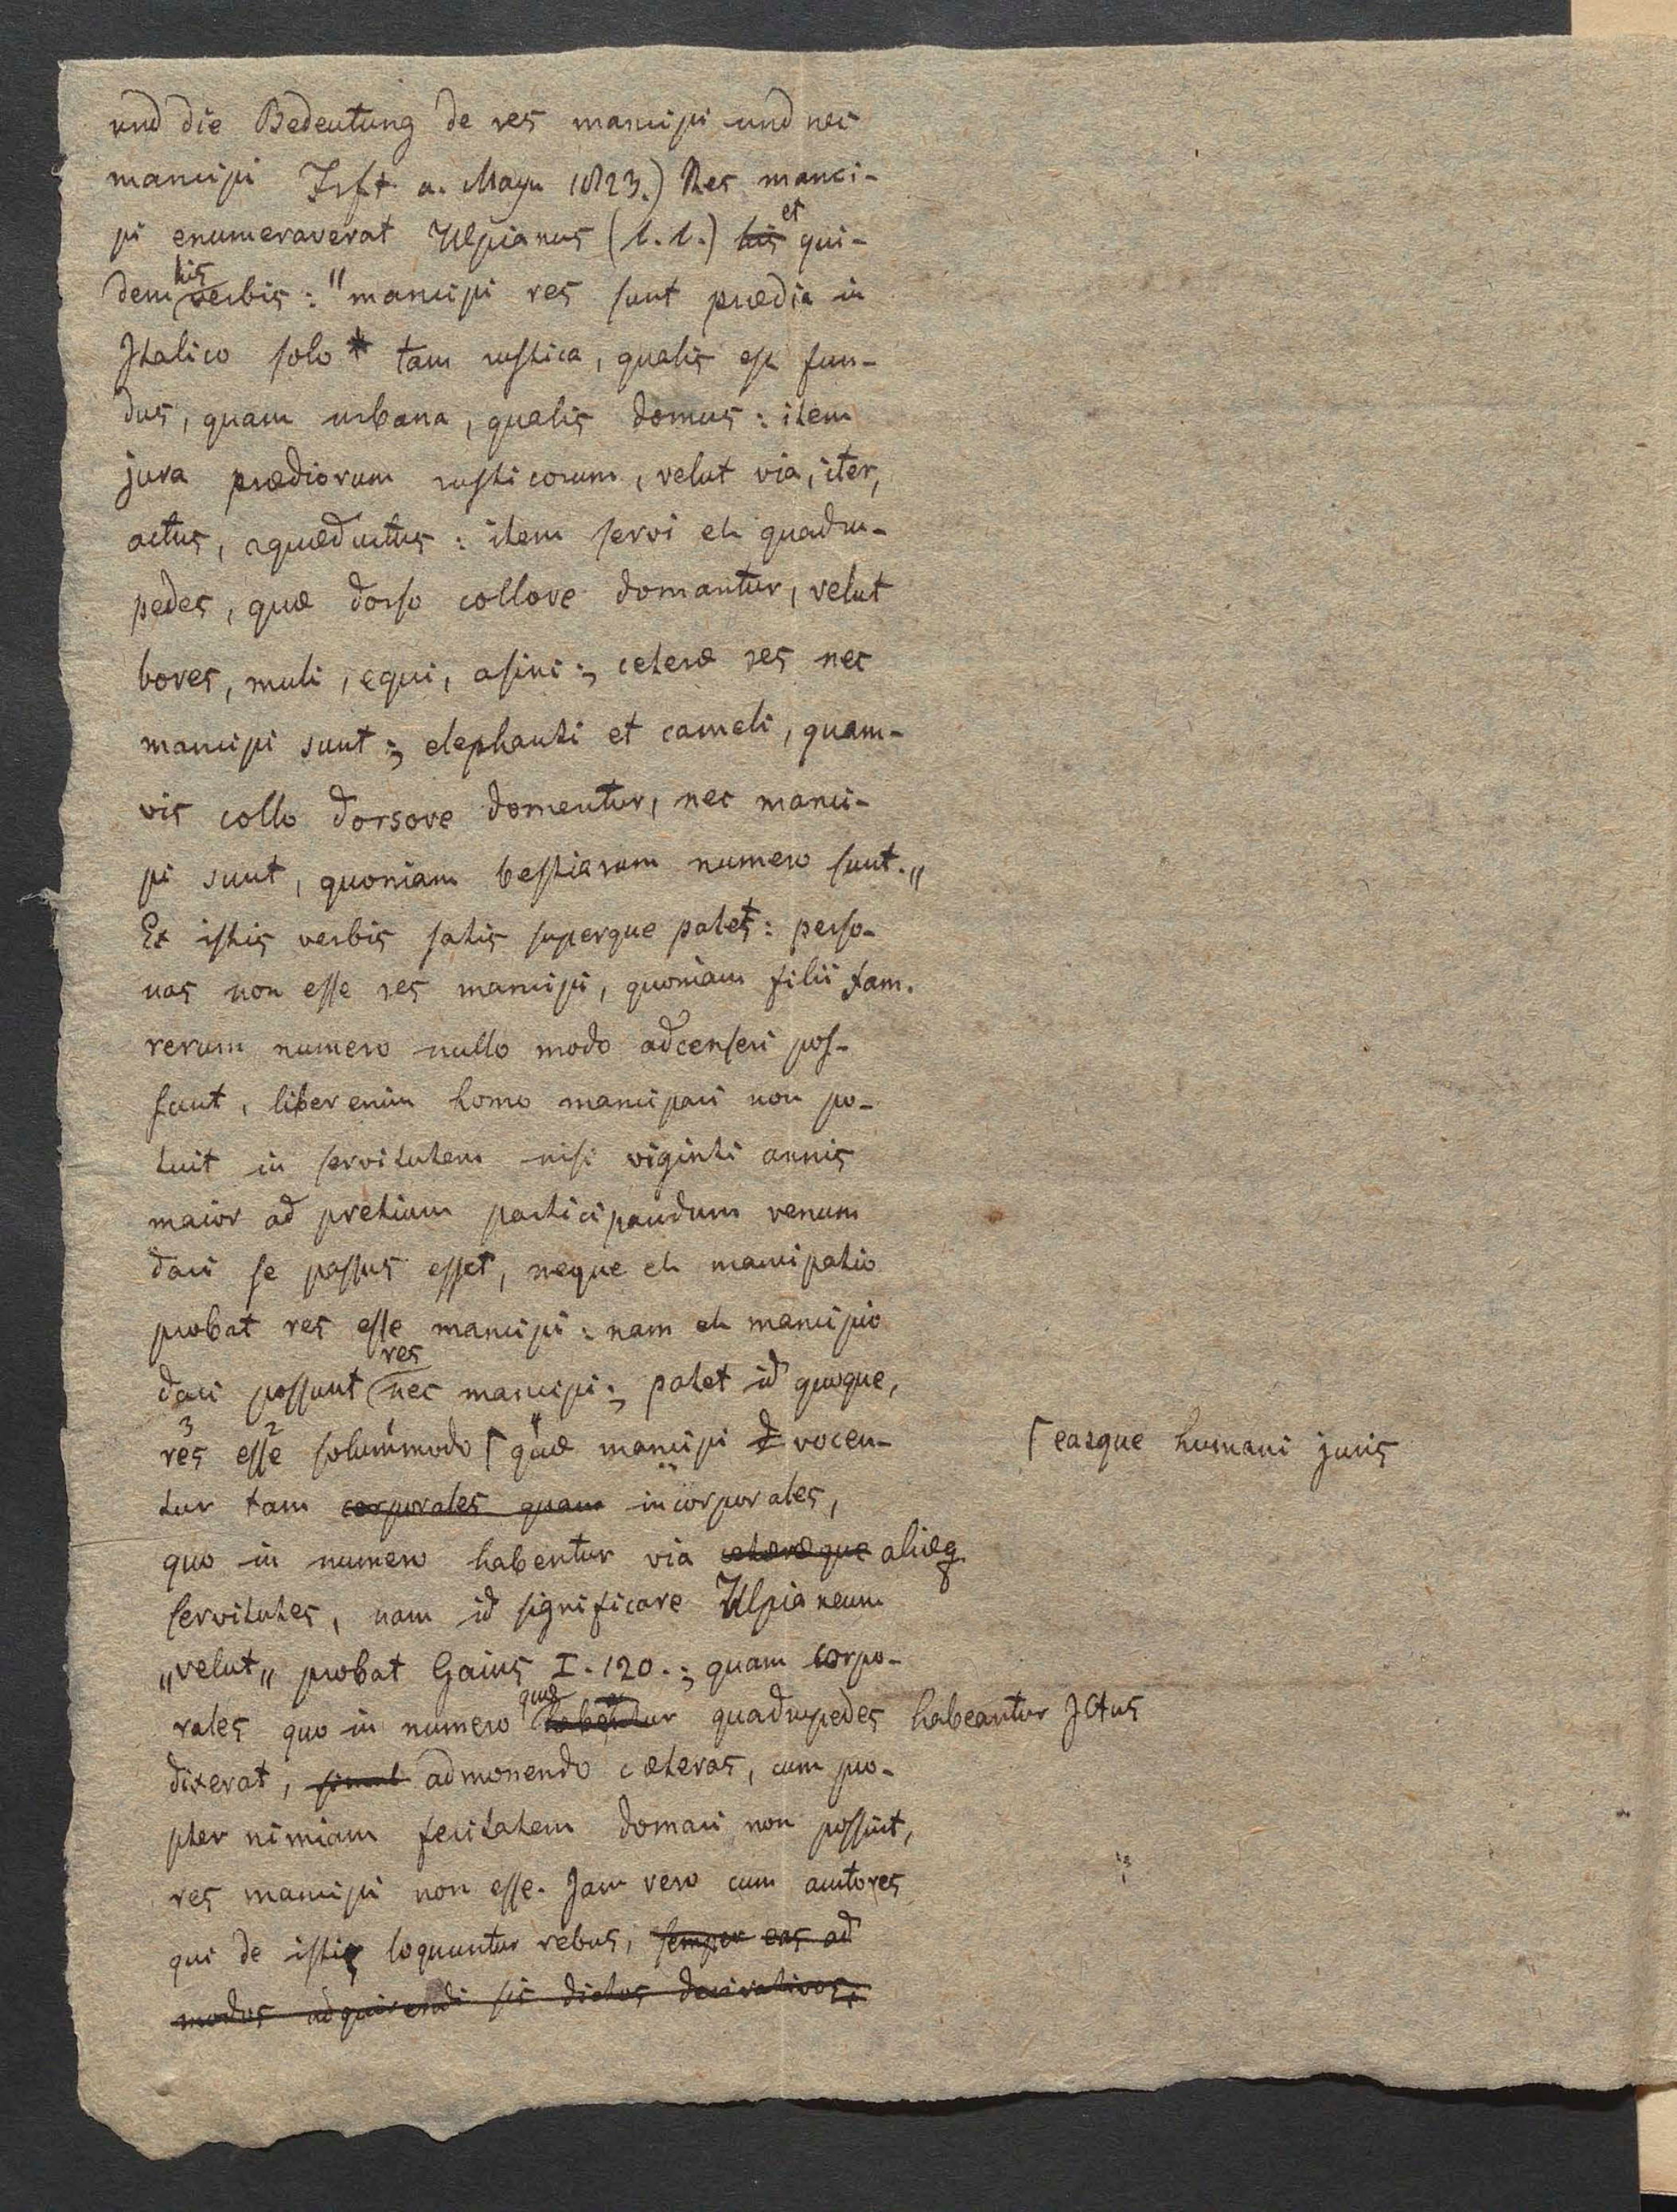 und die Bedeutung de res mancipi und nec
mancipi Frft a. Mayn 1823.) Res manci-
pi enumeraverat Ulpianus (l. l.) his et qui-
dem his verbis: "mancipi res sunt prædia in
Italico solo tam rustica, qualis est fun-
dus, quam urbana, qualis domus: item
jura prædiorum rusticorum, velut via, iter,
actus, aquæductus: item servi et quadru-
pedes, quæ dorso collove domantur, velut
boves, muli, equi, asini; ceteræ res nec
mancipi sunt; elephanti et cameli, quam-
vis collo dorsove domentur, nec manci-
pi sunt, quoniam bestiarum numero sunt.„
Ex istis verbis satis superque patet: perso-
nas non esse res mancipi, quoniam filii fam.
rerum numero nullo modo adcenseri pos-
sunt, liber enim homo mancipari non po-
tuit in servitutem nisi viginti annis
maior ad pretium participandum venum
dari se passus esset, neque et mancipatio
probat res esse mancipi: nam et mancipio
dari possunt res nec mancipi; patet id quoque,
res 3 esse 2 solummodo 1 ⌈ quæ 4 mancipi vocen-
⌈ easque humani juris
tur tam corporales quam incorporales,
quo in numero habentur via cæteræque aliæq.
servitutes, nam id significare Ulpianeum
„velut„ probat Gaius I. 120.; quam corpo-
rales quo in numero quæ habentur quadrupedes habeantur JCtus
dixerat, simul admonendo cæteras, cum pro-
pter nimiam feritatem domari non possint,
res mancipi non esse. Jam vero cum auctores
qui de istis loquuntur rebus, semper eas ad
modos adquirendi sic dictos derivativos;